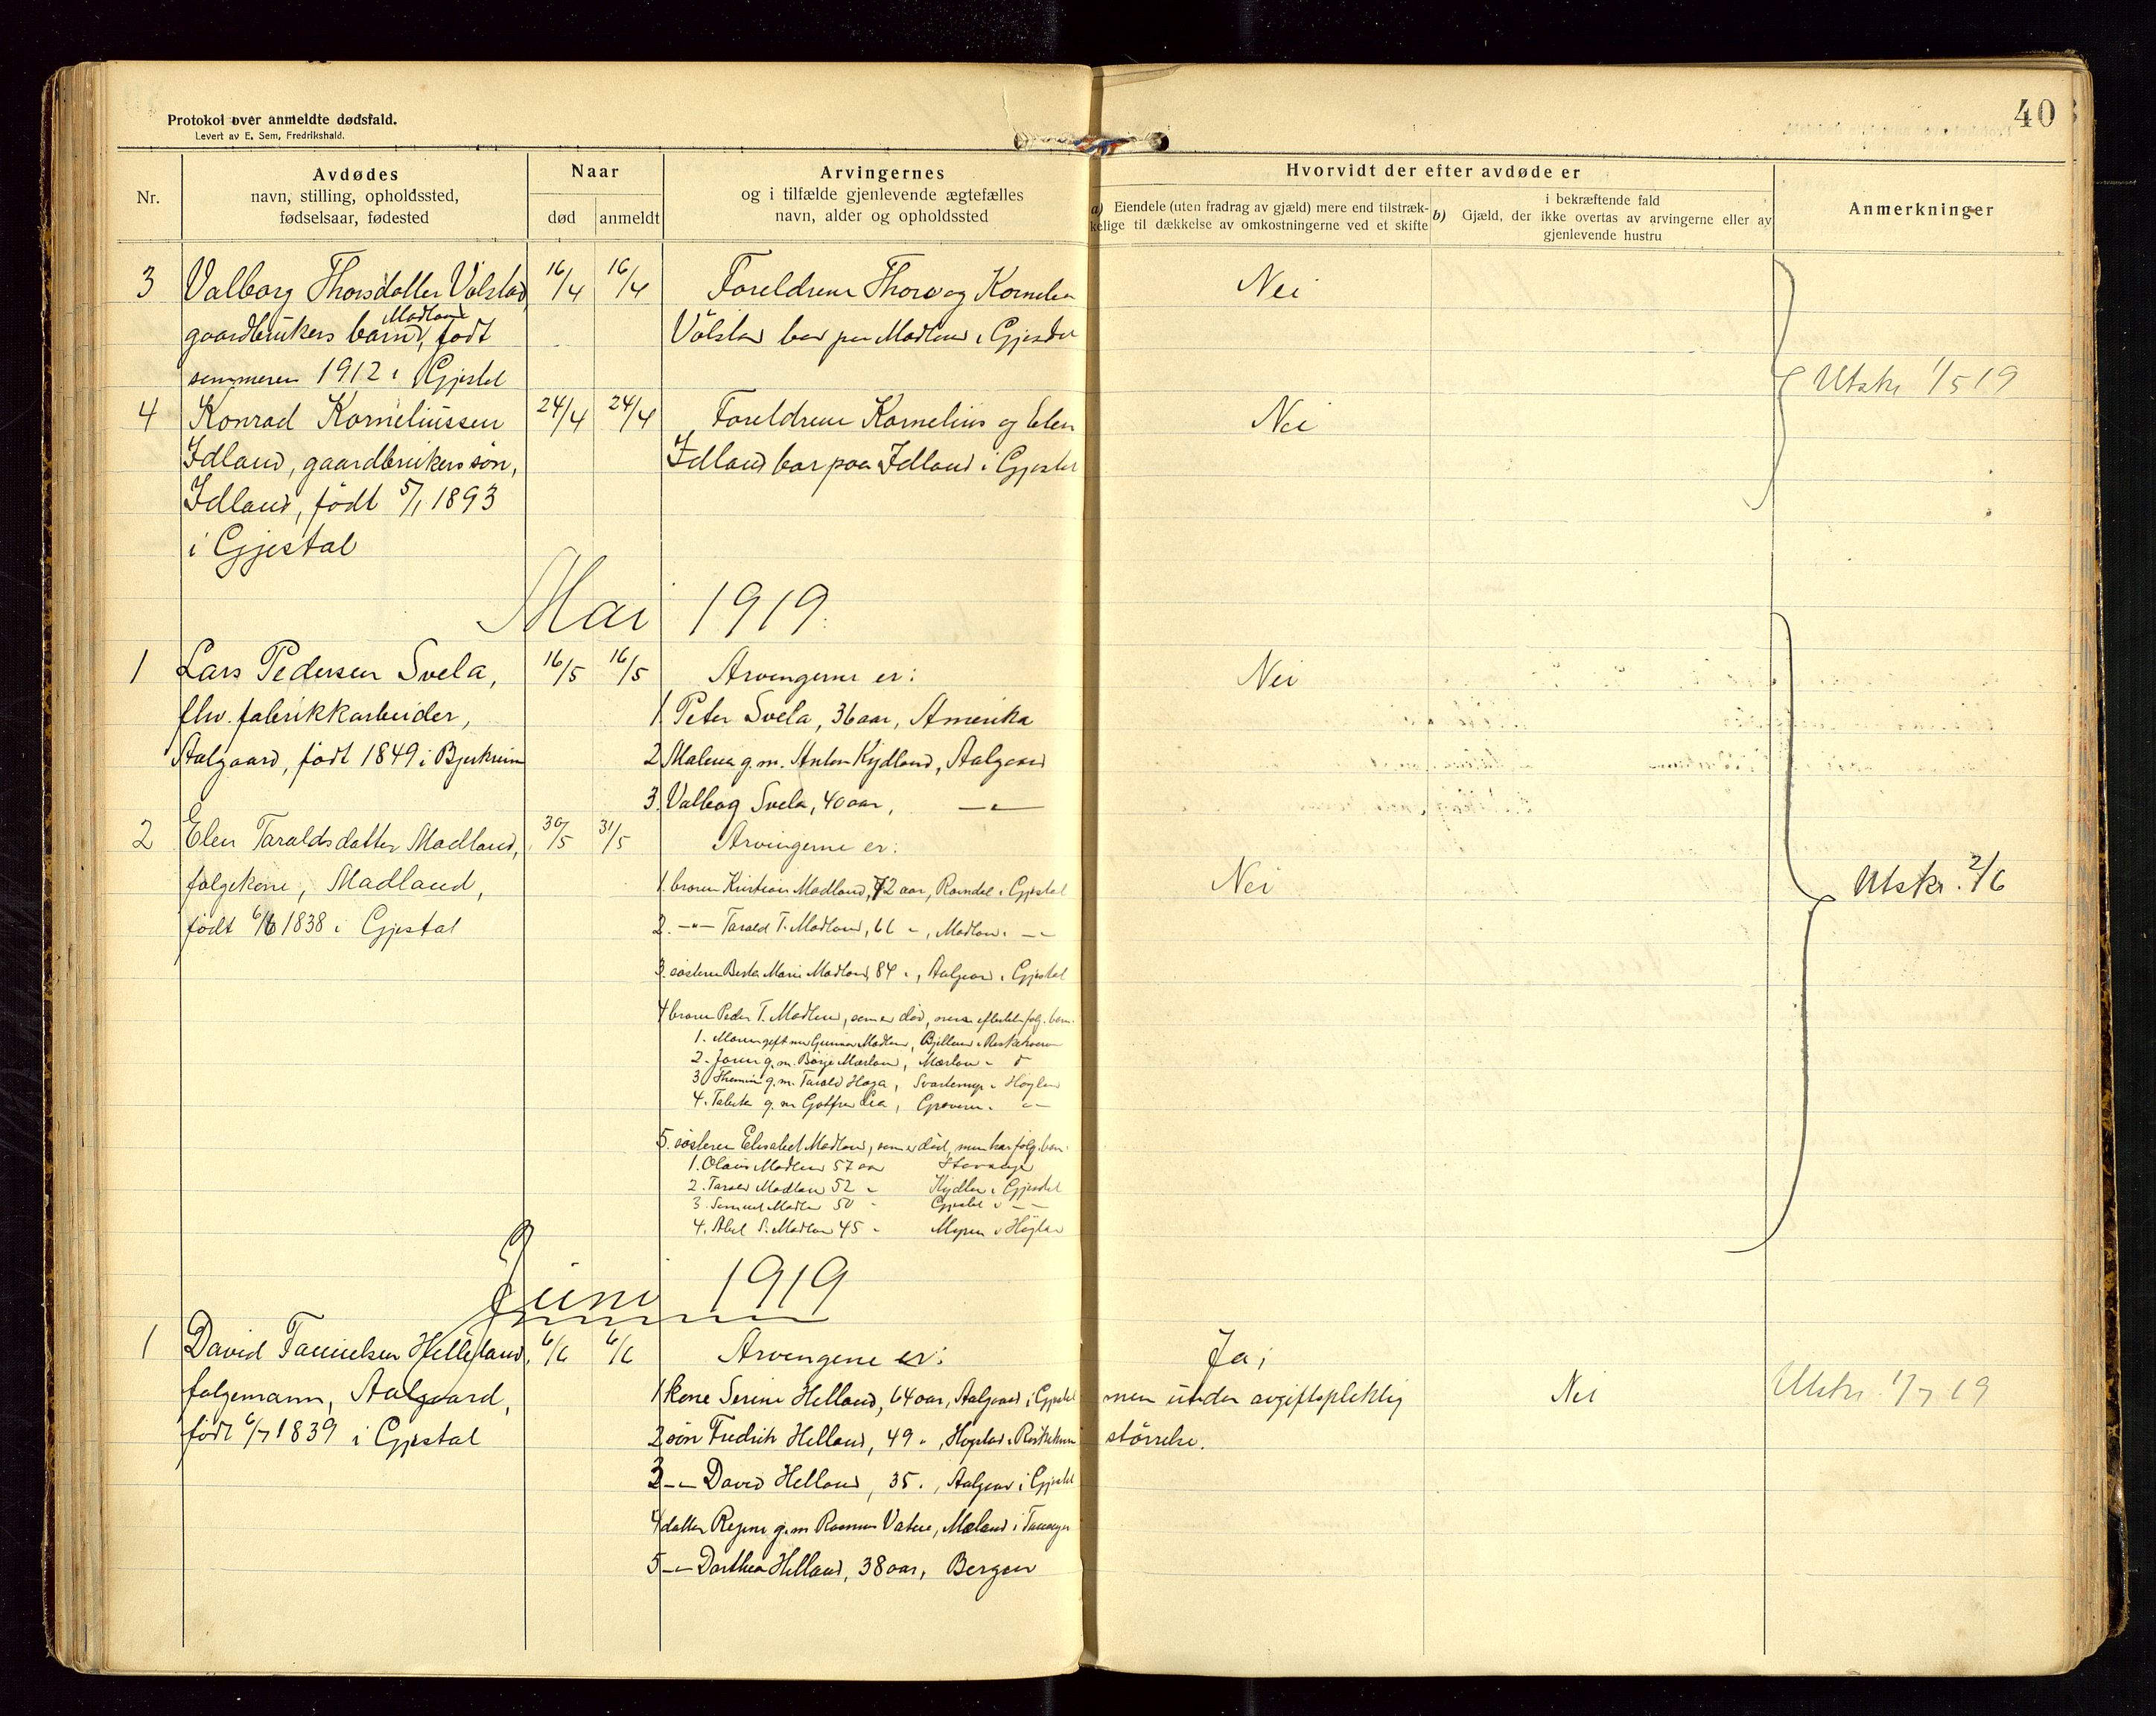 Protokol over anmeldte dødsfald.
Levert av E. Sem, Fredrikshald.
40
Nr.
Avdødes
navn, stilling, opholdssted,
fødselsaar, fødested
Naar
død
anmeldt
Arvingernes
og i tilfælde gjenlevende ægtefælles
navn, alder og opholdssted
Hvorvidt der efter avdøde er
a) Eiendele (uten fradrag av gjæld) mere end tilstræk-
kelige til dækkelse av omkostningerne ved et skifte
i bekræftende fald
b) Gjæld, der ikke overtas av arvingerne eller av
gjenlevende hustru
Anmerkninger
3 Valborg Thorsdatter Vølstad, 16/4 16/4 Foreldrene Thore og Kornelia Nei
Madland
gaardbrukers barn, født Vølstad bor paa Madland i Gjestal
sommeren 1912 i Gjestal
Utskr 1/5 19
4 Konrad Korneliussen 24/4 24/4 Foreldrene Kornelius og Elen Nei
Idland, gaardbrukers søn, Idland bor paa Idland i Gjestal
Idland, født 5/1 1893
i Gjestal
Mai 1919.
1 Lars Pedersen Svela, 16/5 16/5 Arvingerne er: Nei
fhv. fabrikkarbeider, 1 Peter Svela, 36 aar, Amerika
Aalgaard, født 1849 i Bjerkreim 2 Malena g.m. Anton Kydland, Aalgaard
3. Valborg Svela, 40 aar, —"—
2 Elen Taraldsdatter Madland, 30/5 31/5 Arvingerne er:
folgekone, Madland, 1. broren Kristian Madland, 72 aar, Ravndal i Gjestal Nei Utskr. 2/6
født 6/6 1838 i Gjestal 2. —"— Tarald T. Madland, 66 ", Madland —"—
3. søsteren Berta Marie Madland, 84 ", Aalgaard i Gjestal
4 broren Peder T. Madland, som er død, efterlat følg. barn.
1. gift m. Gunnar Madland,
2. g.m. Børge Mæland, Mæland
3 g.m. Tarald Haga, i Høyland
4. Tabita g.m. Gotfred Lea, —"—
5. søsteren Elisabet Madland, som er død, men har følg. barn.
1. Olaus Madland 57 aar Stavanger
2. Tarald Madland 52 " Kydland i Gjestal
3. Samuel Madland 50 " Gjestal —"—
4. Abel S. Madland 45 " i Høyland
Juni 1919
1 David Helleland, 6/6 6/6 Arvingene er: Ja,
folgemann, Aalgaard, 1 kone Serine Helland, 64 aar, Aalgaard i Gjestal men under avgiftspliktig Nei Utskr. 1/7 19
født 6/7 1839 i Gjestal 2 søn Fredrik Helland, 49 ", størrelse.
3 —"— David Helland, 35 ", Aalgaard i Gjestal
4 datter Regine g.m. Rasmus Vatne, Mæland i Tananger
5 —"— Dorthea Helland, 38 aar, Bergen